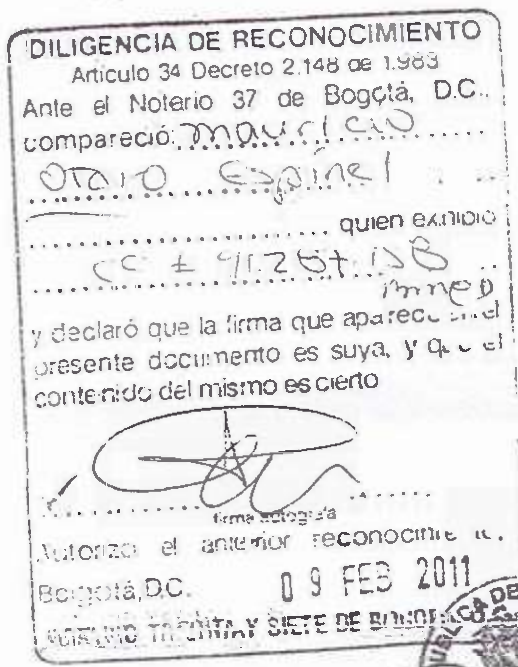 DILIGENCIA DE RECONOCIMIENTO
Articulo 34 Decreto 2.148 de 1.983
Ante el Notario 37 de Bogotá, D.C..
compareció: mauricio
Otalo Espinel
quien exhibió
CC #
y declaró que la firma que aparece en el
presente documento es suya, y que el
contenido del mismo es cierto
firma autografa
Autorizo el anterior reconocimie
Bogotá, D.C. 09 FEB 2011
NOTARIO TREINTA Y SIETE DE BOGOTA